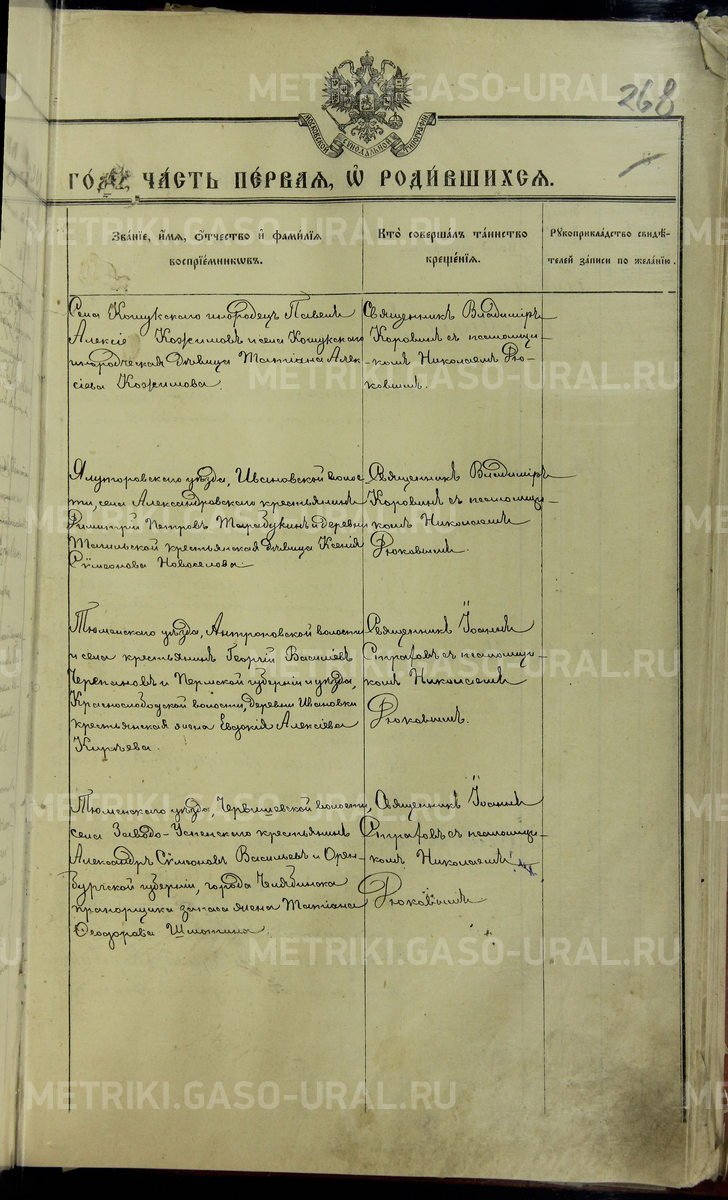 METRIKI.GASO-URAL.RU
268
МОСКОВСКОЙ СѴНОДАЛЬНОЙ ТИПОГРАФІИ
ЧА́СТЬ ПЕ́РВАЯ, Ѡ҆ РОДИ́ВШИХСЯ.
Зва́нїе, и҆́мя, ѻ҆́тчество и҆ фами́лїя
воспрїе́мниковъ.
Кто̀ соверша́лъ та́инство
креще́нїя.
Рꙋкоприкла́дство свидѣ́-
телей за́писи по жела́нію.
Села Кошукскаго инородецъ Павелъ
Алексіе Кожимовъ и села Кошукскаго
инородческая дѣвица Татіана Алек-
сіева Кожимова.
Священникъ Владиміръ
Коровинъ съ псаломщи-
комъ Николаемъ Рю-
ковымъ.
Ялуторовскаго уѣзда, Ивановской волос-
ти, села Александровскаго крестьянинъ
Димитрій Петровъ Тарабукинъ и деревни
крестьянская дѣвица Ксенія
Сѵмеонова Новоселова.
Священникъ Владиміръ
Коровинъ съ псаломщи-
комъ Николаемъ
Рюковымъ.
Тюменскаго уѣзда, Антроповской волости
и села крестьянинъ Георгій Василіевъ
Черепановъ и Пермской губерніи и уѣзда,
Краснослободской волости, деревни Ивановки
крестьянская жена Евдокія Алексіева
Кирѣева.
Священникъ Іоаннъ
съ псаломщи-
комъ Николаемъ
Рюковымъ.
Тюменскаго уѣзда, Червишевской волости,
села Заводо-Успенскаго крестьянинъ
Александръ Сѵмеоновъ Васильевъ и Орен-
бургской губерніи, города Челябинска
прапорщика запаса жена Татіана
Ѳеодорова
Священникъ Іоаннъ
съ псаломщи-
комъ Николаемъ
Рюковымъ